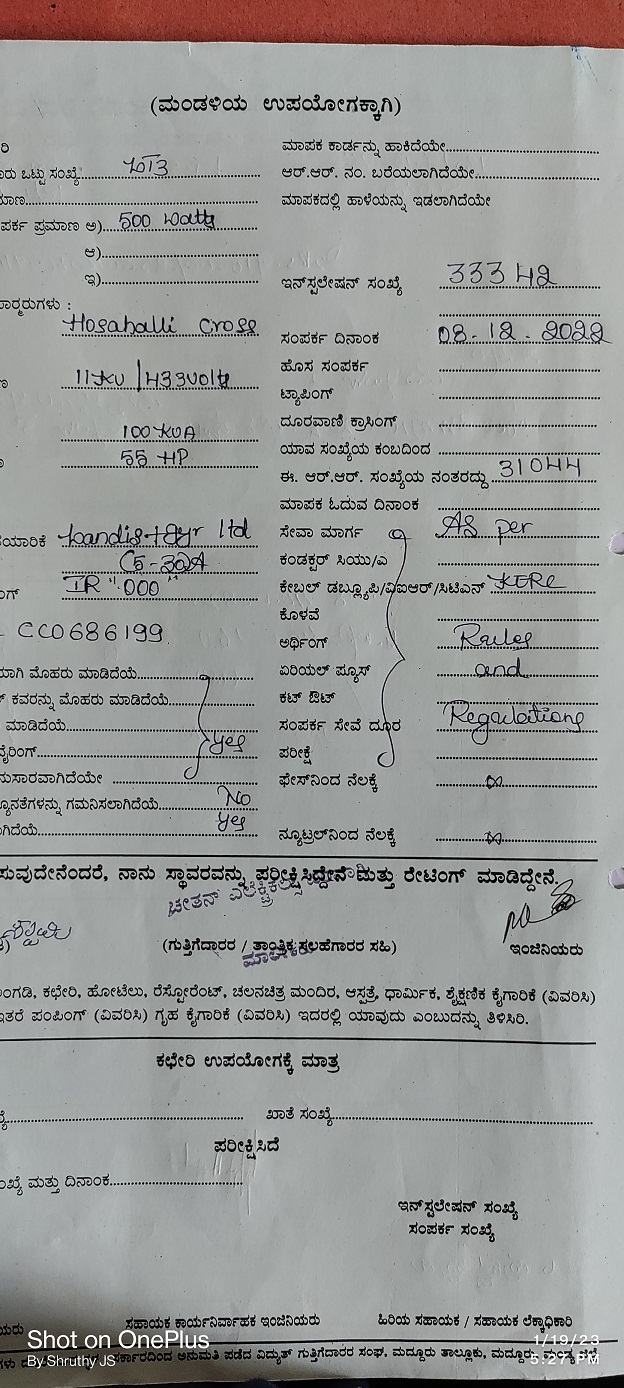 (ಮಂಡಳಿಯ ಉಪಯೋಗಕ್ಕಾಗಿ)
ಮಾಪಕ ಕಾರ್ಡನ್ನು ಹಾಕಿದೆಯೇ
ಒಟ್ಟು ಸಂಖ್ಯೆ
ಆರ್.ಆರ್. ನಂ. ಬರೆಯಲಾಗಿದೆಯೇ
ಮಾಪಕದಲ್ಲಿ ಹಾಳೆಯನ್ನು ಇಡಲಾಗಿದೆಯೇ
ಪ್ರಮಾಣ ಅ) 500 Watts
ಆ)
ಇ)
ಇನ್‌ಸ್ಟಲೇಷನ್ ಸಂಖ್ಯೆ 33342
Hosahalli Cross
ಸಂಪರ್ಕ ದಿನಾಂಕ 08-12-2022
ಹೊಸ ಸಂಪರ್ಕ
11KV/433Volts
ಟ್ಯಾಪಿಂಗ್
ದೂರವಾಣಿ ಕ್ರಾಸಿಂಗ್
100 KVA
ಯಾವ ಸಂಖ್ಯೆಯ ಕಂಬದಿಂದ
55 HP
ಈ. ಆರ್.ಆರ್. ಸಂಖ್ಯೆಯ ನಂತರದ್ದು 31044
ಮಾಪಕ ಓದುವ ದಿನಾಂಕ
Landis+Gyr ltd
ಸೇವಾ ಮಾರ್ಗ As per
C5-30A
ಕಂಡಕ್ಟರ್ ಸಿಯು/ಎ
IR "000"
ಕೇಬಲ್ ಡಬ್ಲ್ಯೂಪಿ/ವಿಐಆರ್/ಸಿಟಿಎಸ್ KERC
ಕೊಳವೆ
CC0686199
ಅರ್ಥಿಂಗ್ Rules
ಮೊಹರು ಮಾಡಿದೆಯೆ
ಏರಿಯಲ್ ಪ್ಯೂಸ್ and
ಕವರನ್ನು ಮೊಹರು ಮಾಡಿದೆಯೆ
ಕಟ್ ಔಟ್
ಮಾಡಿದೆಯೆ
ಸಂಪರ್ಕ ಸೇವೆ ದೂರ Regulations
Yes
ಪರೀಕ್ಷೆ
ಫೇಸ್‌ನಿಂದ ನೆಲಕ್ಕೆ ∞
ಗಮನಿಸಲಾಗಿದೆಯೆ No
Yes
ನ್ಯೂಟ್ರಲ್‌ನಿಂದ ನೆಲಕ್ಕೆ ∞
ನಾನು ಸ್ಥಾವರವನ್ನು ಪರೀಕ್ಷಿಸಿದ್ದೇನೆ ಮತ್ತು ರೇಟಿಂಗ್ ಮಾಡಿದ್ದೇನೆ.
ಚೇತನ್
(ಗುತ್ತಿಗೆದಾರರ / ತಾಂತ್ರಿಕ ಸಲಹೆಗಾರರ ಸಹಿ)
ಇಂಜಿನಿಯರು
ಮಾಲೀಕರು
ಕಛೇರಿ, ಹೋಟೆಲು, ರೆಸ್ಟೋರೆಂಟ್, ಚಲನಚಿತ್ರ ಮಂದಿರ, ಆಸ್ಪತ್ರೆ, ಧಾರ್ಮಿಕ, ಶೈಕ್ಷಣಿಕ ಕೈಗಾರಿಕೆ (ವಿವರಿಸಿ)
ಇತರೆ ಪಂಪಿಂಗ್ (ವಿವರಿಸಿ) ಗೃಹ ಕೈಗಾರಿಕೆ (ವಿವರಿಸಿ) ಇದರಲ್ಲಿ ಯಾವುದು ಎಂಬುದನ್ನು ತಿಳಿಸಿರಿ.
ಕಛೇರಿ ಉಪಯೋಗಕ್ಕೆ ಮಾತ್ರ
ಖಾತೆ ಸಂಖ್ಯೆ
ಪರೀಕ್ಷಿಸಿದೆ
ಮತ್ತು ದಿನಾಂಕ
ಇನ್‌ಸ್ಟಲೇಷನ್ ಸಂಖ್ಯೆ
ಸಂಪರ್ಕ ಸಂಖ್ಯೆ
ಸಹಾಯಕ ಕಾರ್ಯನಿರ್ವಾಹಕ ಇಂಜಿನಿಯರು
ಹಿರಿಯ ಸಹಾಯಕ / ಸಹಾಯಕ ಲೆಕ್ಕಾಧಿಕಾರಿ
Shot on OnePlus
By Shruthy JS
1/19/23
5:27 PM
ಅನುಮತಿ ಪಡೆದ ವಿದ್ಯುತ್ ಗುತ್ತಿಗೆದಾರರ ಸಂಘ, ಮದ್ದೂರು ತಾಲ್ಲೂಕು, ಮದ್ದೂರು, ಮಂಡ್ಯ ಜಿಲ್ಲೆ